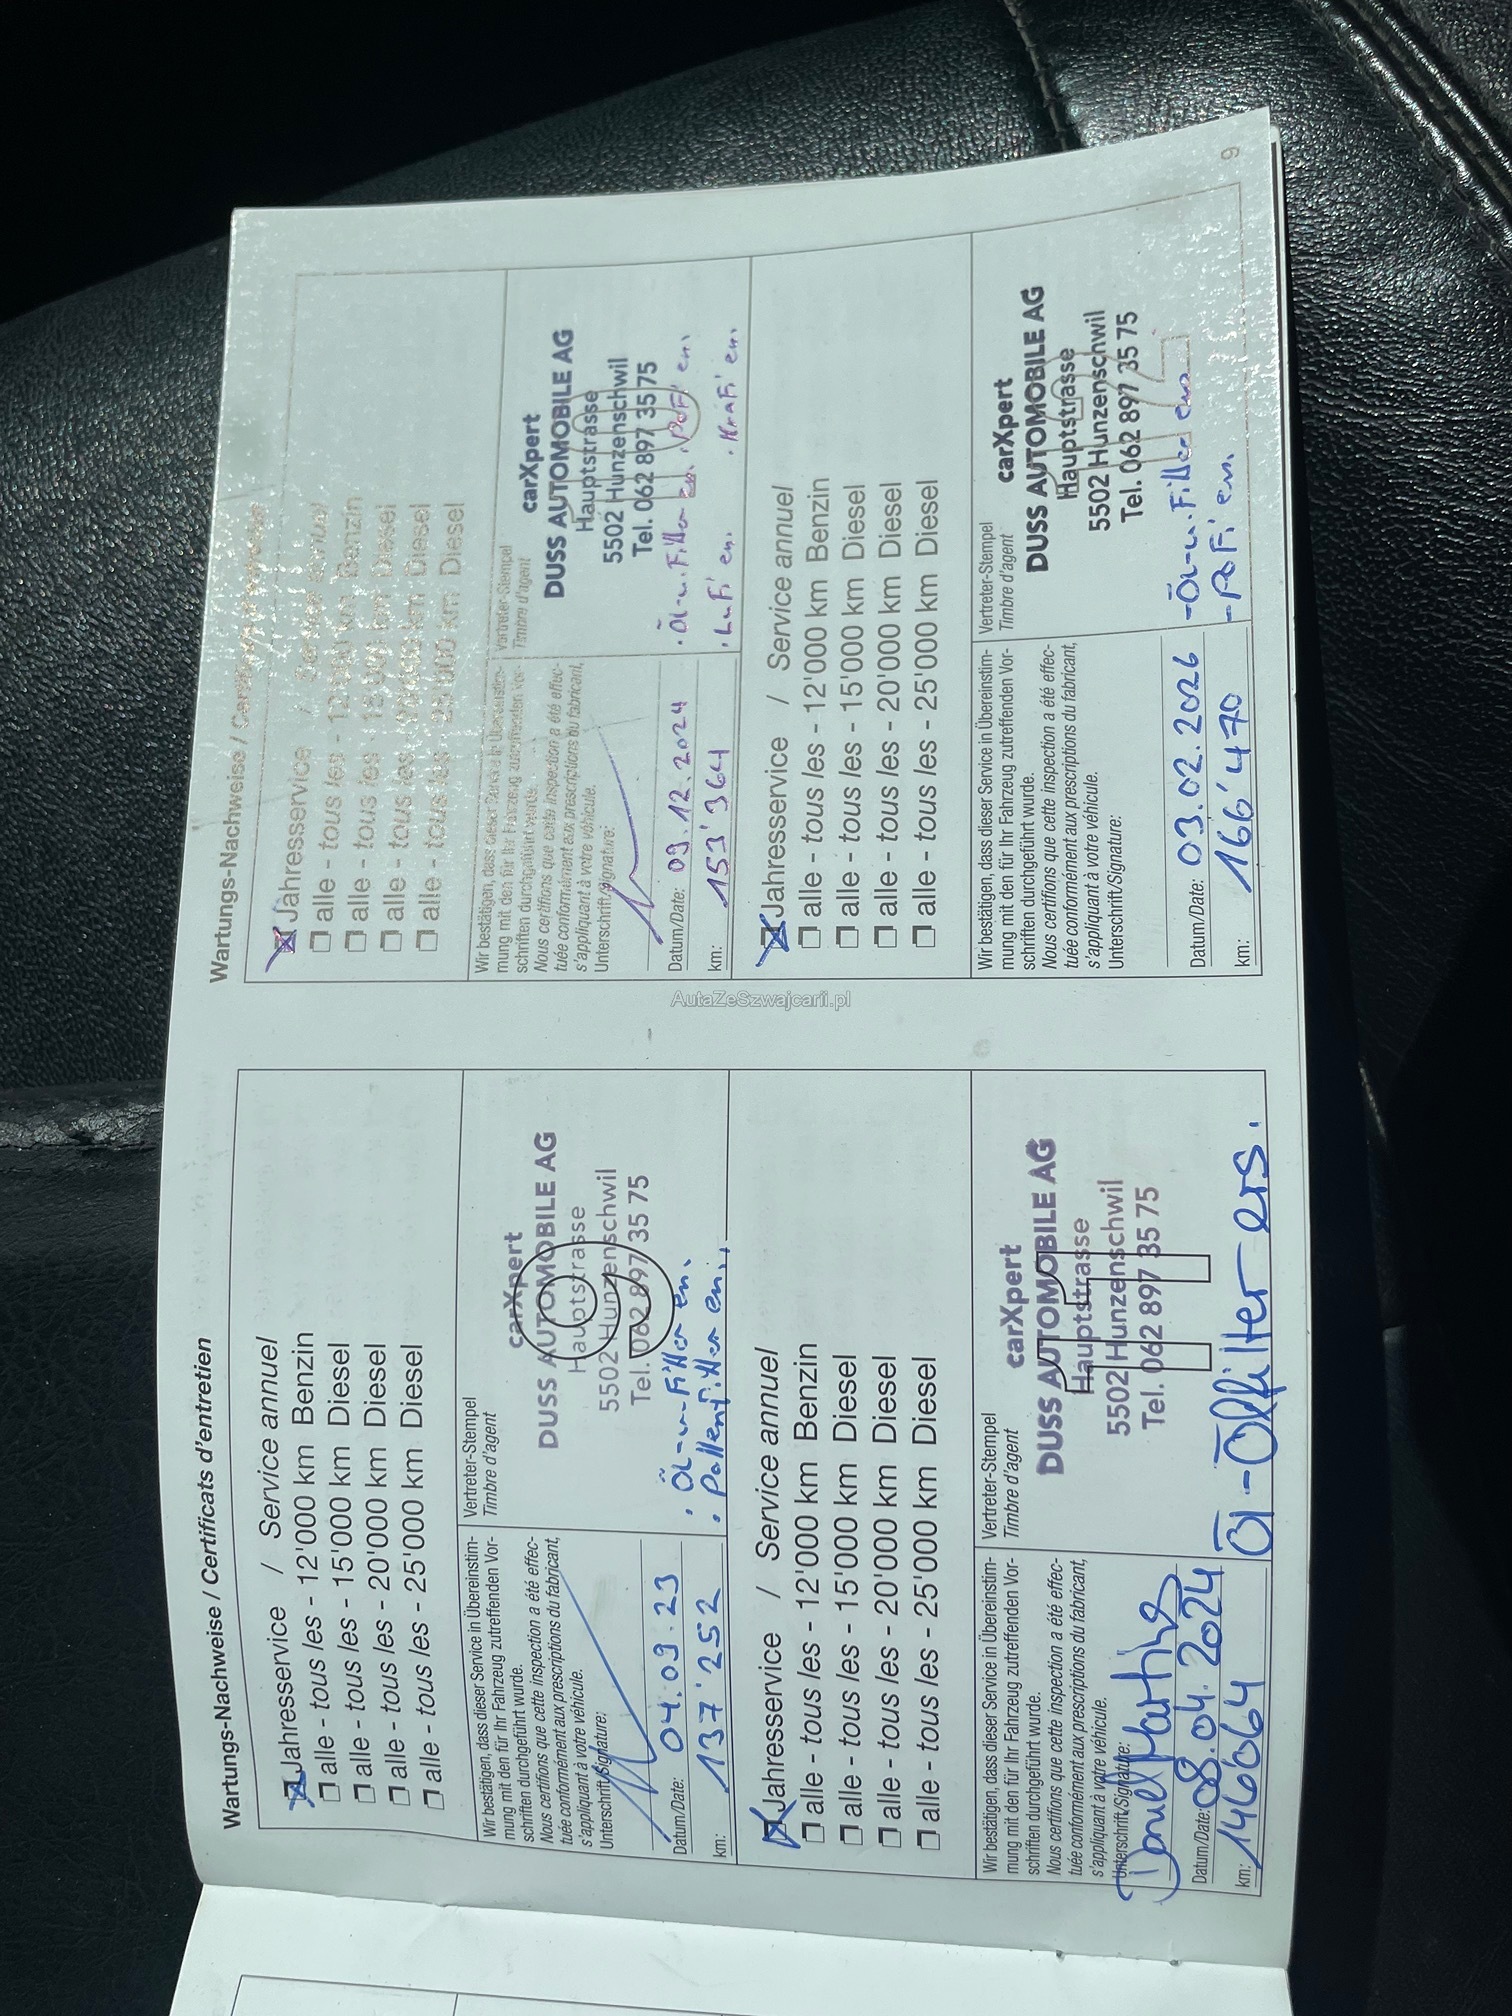 Wartungs-Nachweise / Certificats d'entretien
Jahresservice / Service annuel
alle - tous les - 12'000 km Benzin
alle - tous les - 15'000 km Diesel
alle - tous les - 20'000 km Diesel
alle - tous les - 25'000 km Diesel
Wir bestätigen, dass dieser Service in Übereinstim-
mung mit den für Ihr Fahrzeug zutreffenden Vor-
schriften durchgeführt wurde.
Nous certifions que cette inspection a été effec-
tuée conformément aux prescriptions du fabricant,
s'appliquant à votre véhicule.
Unterschrift/Signature:
Datum/Date: 04.09.23
km: 137'252
Vertreter-Stempel
Timbre d'agent
9
carXpert
DUSS AUTOMOBILE AG
Hauptstrasse
5502 Hunzenschwil
Tel. 062 897 35 75
· Öl-u-Filter en.
· Pollenfilter en.
Jahresservice / Service annuel
alle - tous les - 12'000 km Benzin
alle - tous les - 15'000 km Diesel
alle - tous les - 20'000 km Diesel
alle - tous les - 25'000 km Diesel
Wir bestätigen, dass dieser Service in Übereinstim-
mung mit den für Ihr Fahrzeug zutreffenden Vor-
schriften durchgeführt wurde.
Nous certifions que cette inspection a été effec-
tuée conformément aux prescriptions du fabricant,
s'appliquant à votre véhicule.
Unterschrift/Signature:
Datum/Date: 08.04.2024
km: 146064
Vertreter-Stempel
Timbre d'agent
carXpert
DUSS AUTOMOBILE AG
Hauptstrasse
5502 Hunzenschwil
Tel. 062 897 35 75
Öl-Ölfilter ers.
Wartungs-Nachweise /
Jahresservice / Service annuel
alle - tous les - 12'000 km Benzin
alle - tous les - 15'000 km Diesel
alle - tous les - 20'000 km Diesel
alle - tous les - 25'000 km Diesel
Wir bestätigen, dass dieser Service in Übereinstim-
mung mit den für Ihr Fahrzeug zutreffenden Vor-
schriften durchgeführt wurde.
Nous certifions que cette inspection a été effec-
tuée conformément aux prescriptions du fabricant,
s'appliquant à votre véhicule.
Unterschrift/Signature:
Datum/Date: 09.12.2024
km: 153'364
Vertreter-Stempel
Timbre d'agent
carXpert
DUSS AUTOMOBILE AG
Hauptstrasse
5502 Hunzenschwil
Tel. 062 897 35 75
· Öl-u.Filter en. · PoFi' en.
· LuFi' en. · KraFi' en.
Jahresservice / Service annuel
alle - tous les - 12'000 km Benzin
alle - tous les - 15'000 km Diesel
alle - tous les - 20'000 km Diesel
alle - tous les - 25'000 km Diesel
Wir bestätigen, dass dieser Service in Übereinstim-
mung mit den für Ihr Fahrzeug zutreffenden Vor-
schriften durchgeführt wurde.
Nous certifions que cette inspection a été effec-
tuée conformément aux prescriptions du fabricant,
s'appliquant à votre véhicule.
Unterschrift/Signature:
Datum/Date: 03.02.2026
km: 166'470
Vertreter-Stempel
Timbre d'agent
12
carXpert
DUSS AUTOMOBILE AG
Hauptstrasse
5502 Hunzenschwil
Tel. 062 897 35 75
- Öl-u.Filter en
- PoFi' en.
9
AutaZeSzwajcarii.pl